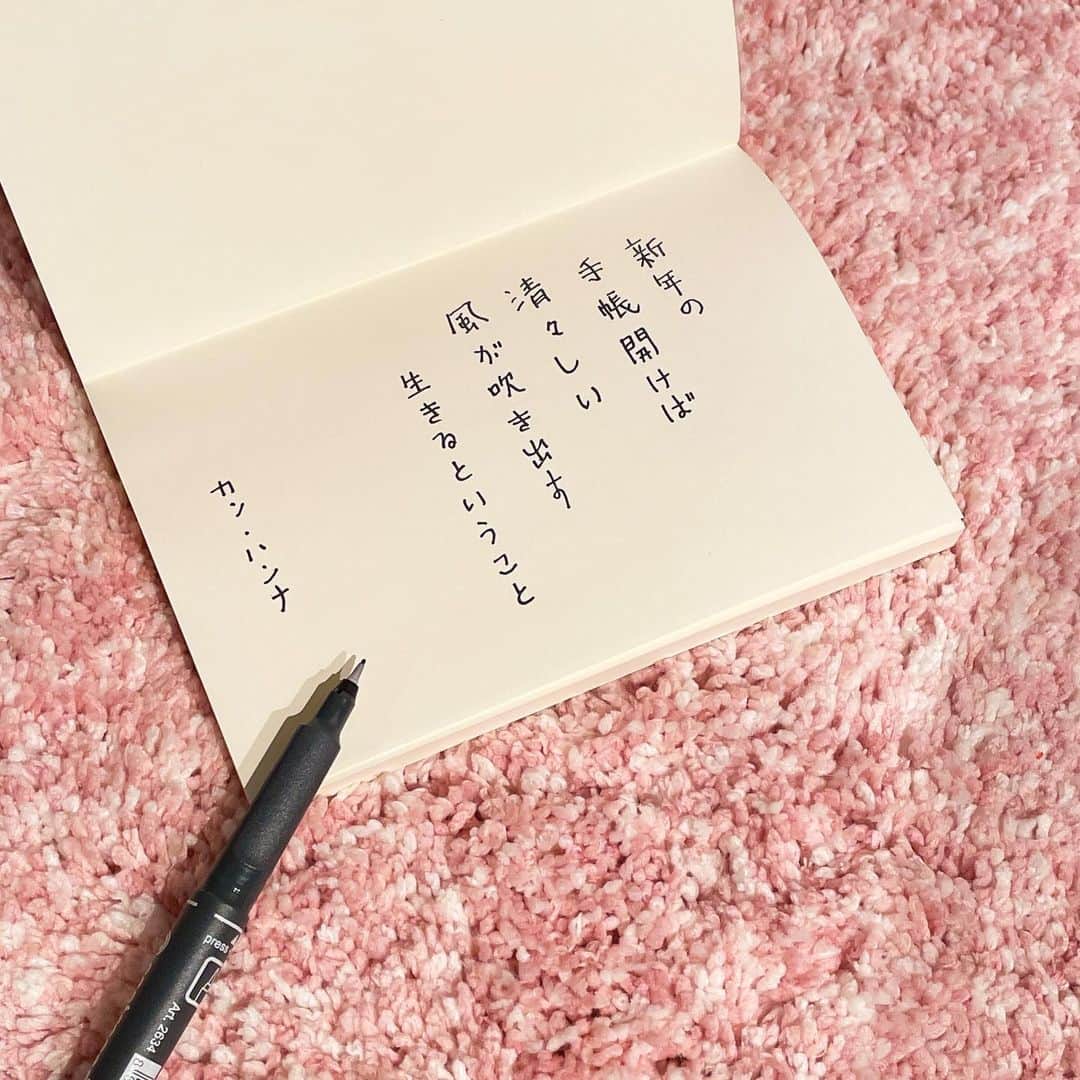 新年の
手帳開けば
清々しい
風が吹き出す
生きるということ
カン・ハンナ
press
Art. 2634